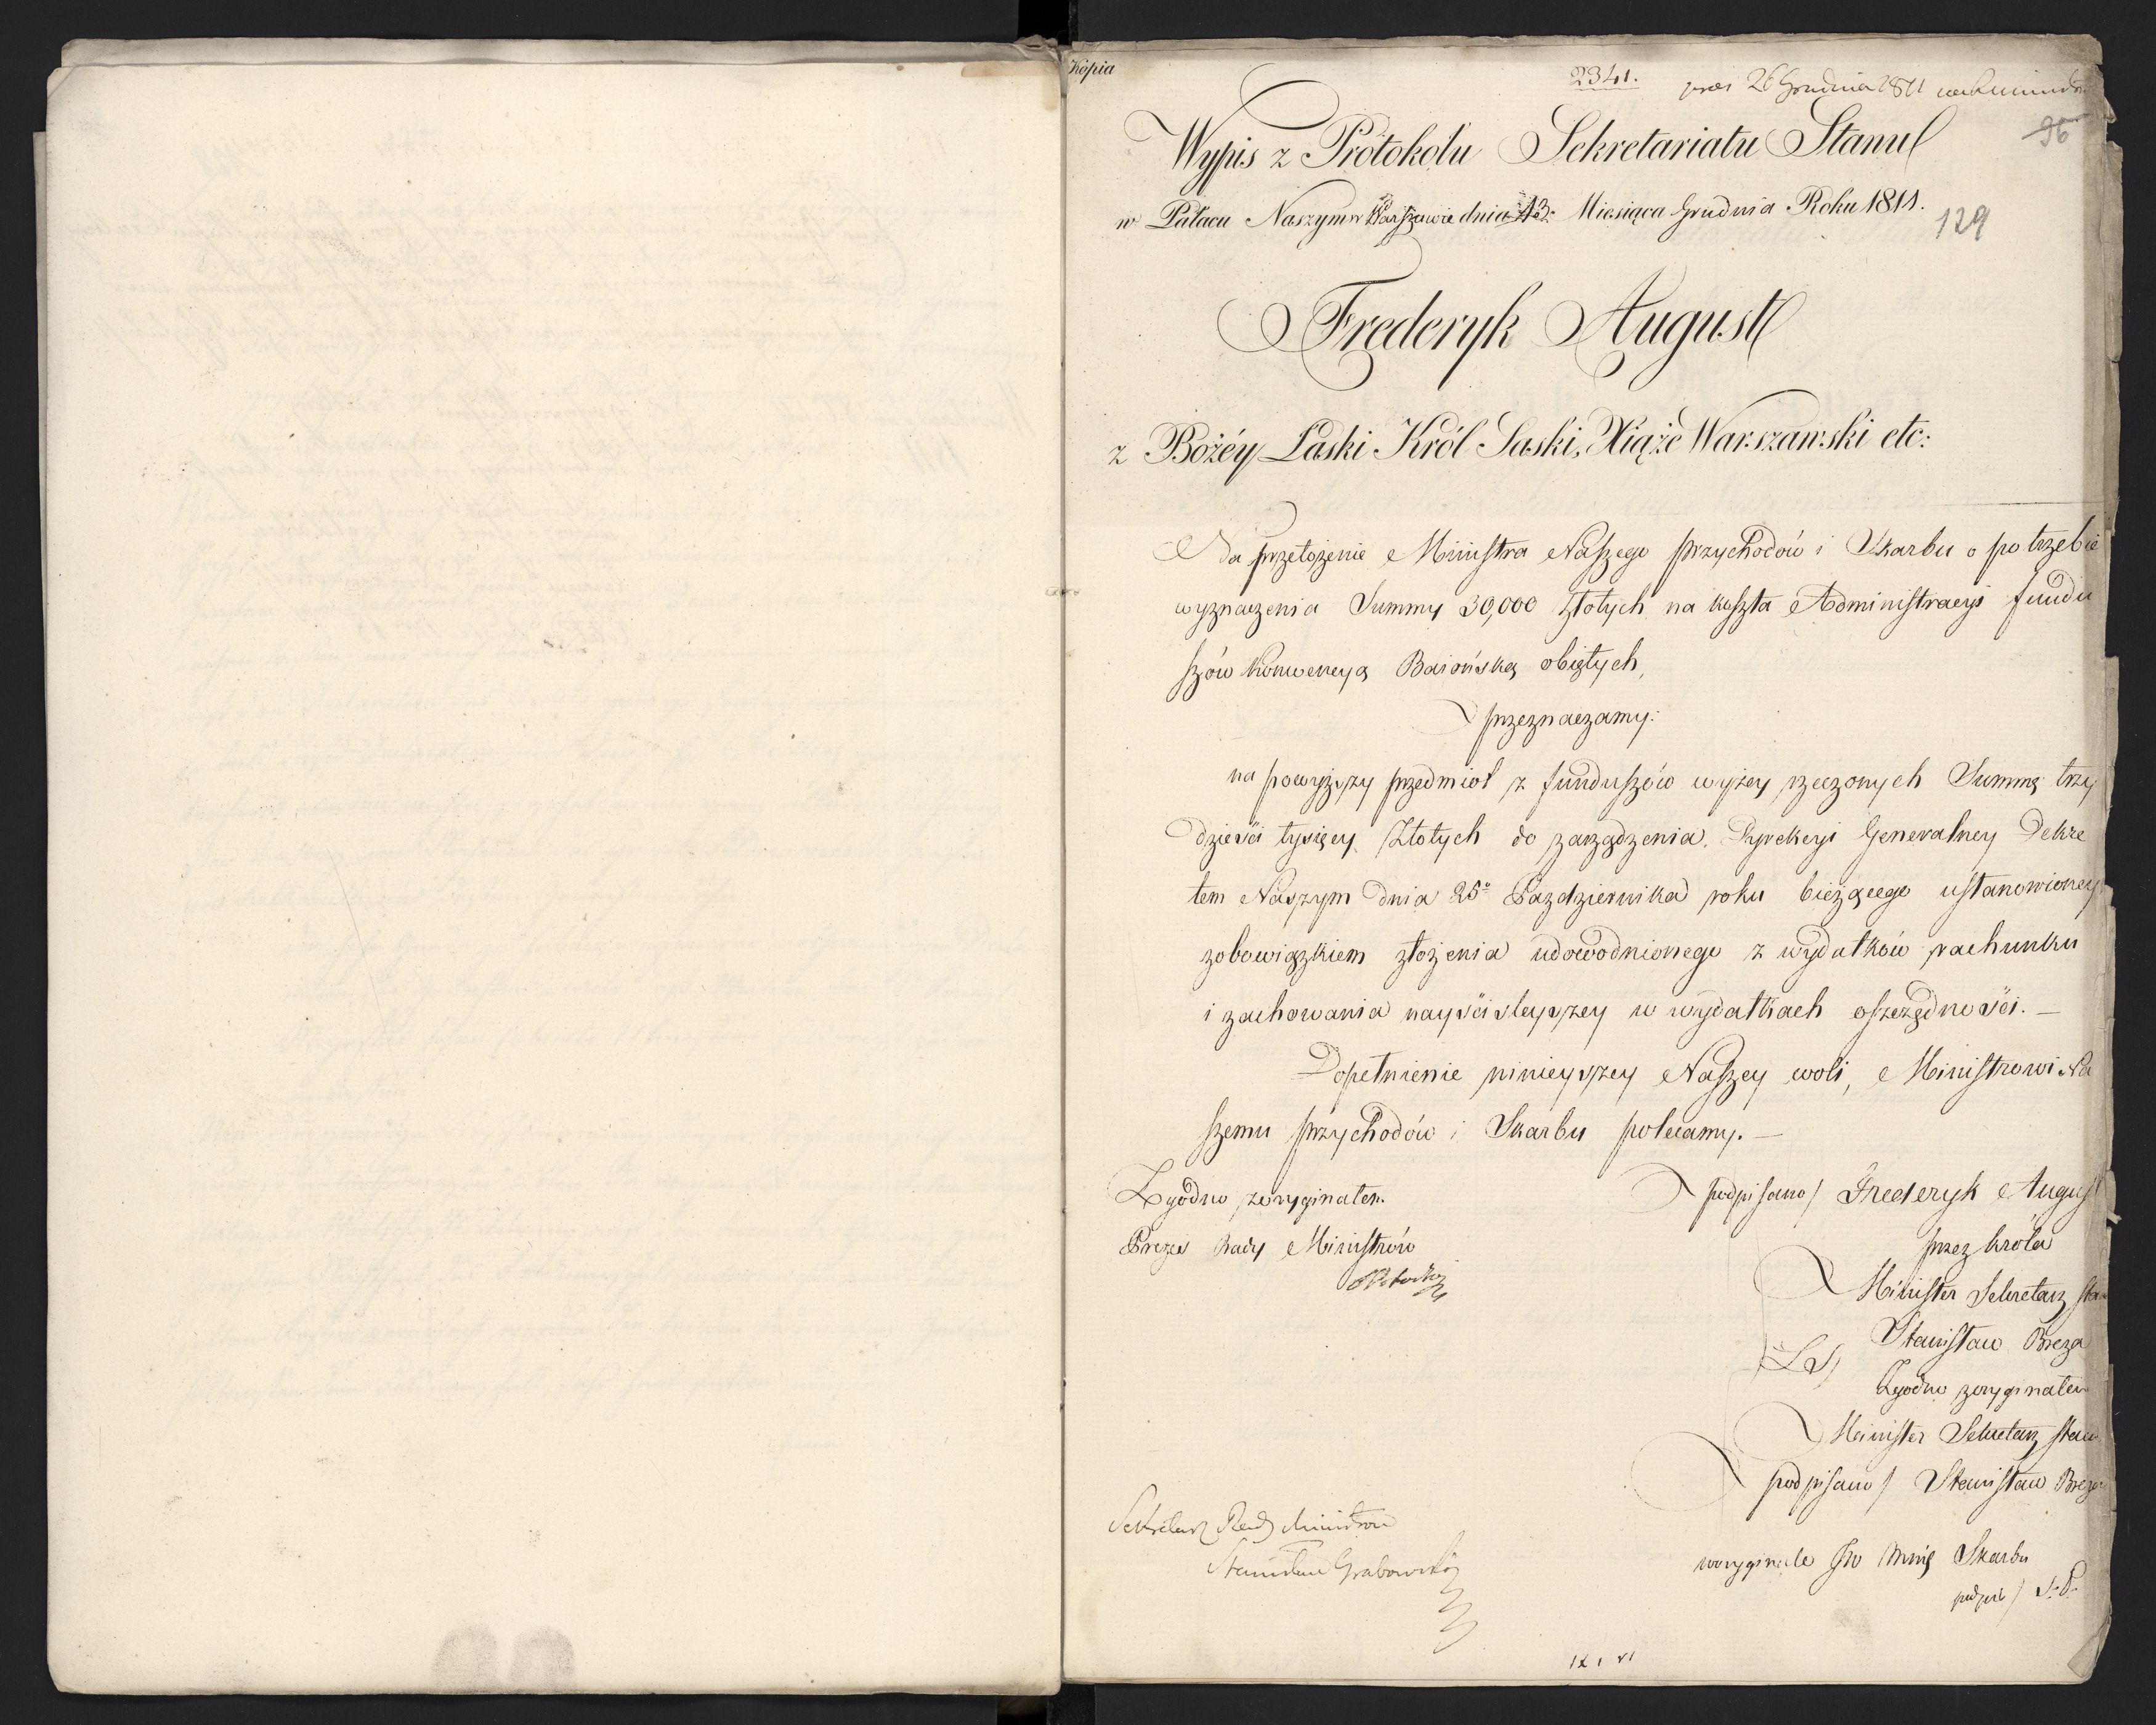 Kopia
2341.
pres 26 Grudnia 1811
96
Wypis z Protokołu Sekretariatu Stanu
w Pałacu Naszym w Warszawie dnia 13. Miesiąca Grudnia Roku 1811.
129
Frederyk August
z Bożéy Łaski Król Saski, Xiąże Warszawski etc:
Na przełożenie Ministra Naszego przychodów i Skarbu o potrzebie
wyznaczenia Summy 30,000 Złotych na koszta Administracyi fundu
szów Konwencyą Baiońską obiętych,
przeznaczamy:
na powyższy przedmiot z funduszów wyżey rzeczonych Summę trzy
dzieści tysięcy Złotych do zarządzenia Dyrekcyi Generalney Dekre
tem Naszym dnia 25o Pazdziernika roku bieżącego ustanowioney
zobowiązkiem złożenia udowodnionego z wydatków rachunku
i zachowania nayściśleyszey w wydatkach oszczędności. —
Dopełnienie ninieyszey Naszey woli, Ministrowi Na
szemu przychodów i Skarbu polecamy. —
Zgodno zoryginałem
Prezes Rady Ministrów
podpisano / Frederyk August
przez króla
Minister Sekretarz Sta
Stanisław Breza
LS
Zgodno zoryginałem
Minister Sekretarz stanu
podpisano / Stanisław Breza
Sekretarz Rady Ministrow
Stanisław Grabowski
woryginale Skarbu